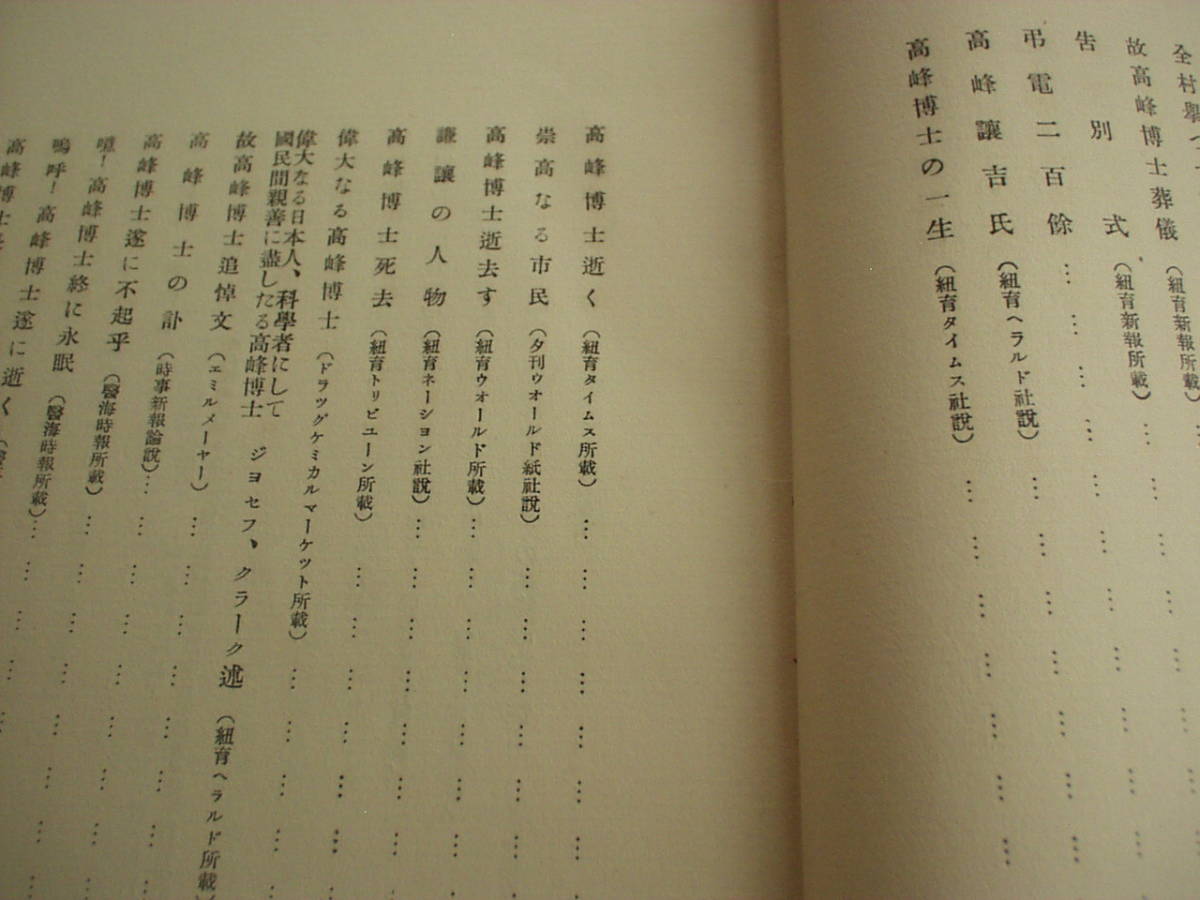 全村擧つて
故高峰博士葬儀(紐育新報所載)…
告別式(紐育新報所載)………………
弔電二百餘………………………
高峰讓吉氏(紐育ヘラルド社說)………………
高峰博士の一生(紐育タイムス社說)………………
高峰博士逝く(紐育タイムス所載)………………
崇高なる市民(夕刊ウオールド紙社說)………………
高峰博士逝去す(紐育ウオールド所載)………………
謙讓の人物(紐育ネーション社說)………………
高峰博士死去(紐育トリビユーン所載)………………
偉大なる高峰博士(ドラツグケミカルマーケツト所載)………………
偉大なる日本人、科學者にして
國民間親善に盡したる高峰博士 ジヨセフ、クラーク述(紐育ヘラルド所載)
故高峰博士追悼文(エミルメーヤー)………………
高峰博士の訃(時事新報論說)………………
高峰博士遂に不起乎(醫海時報所載)………………
噫!高峰博士終に永眠(醫海時報所載)………………
嗚呼!高峰博士遂に逝く
高峰博士